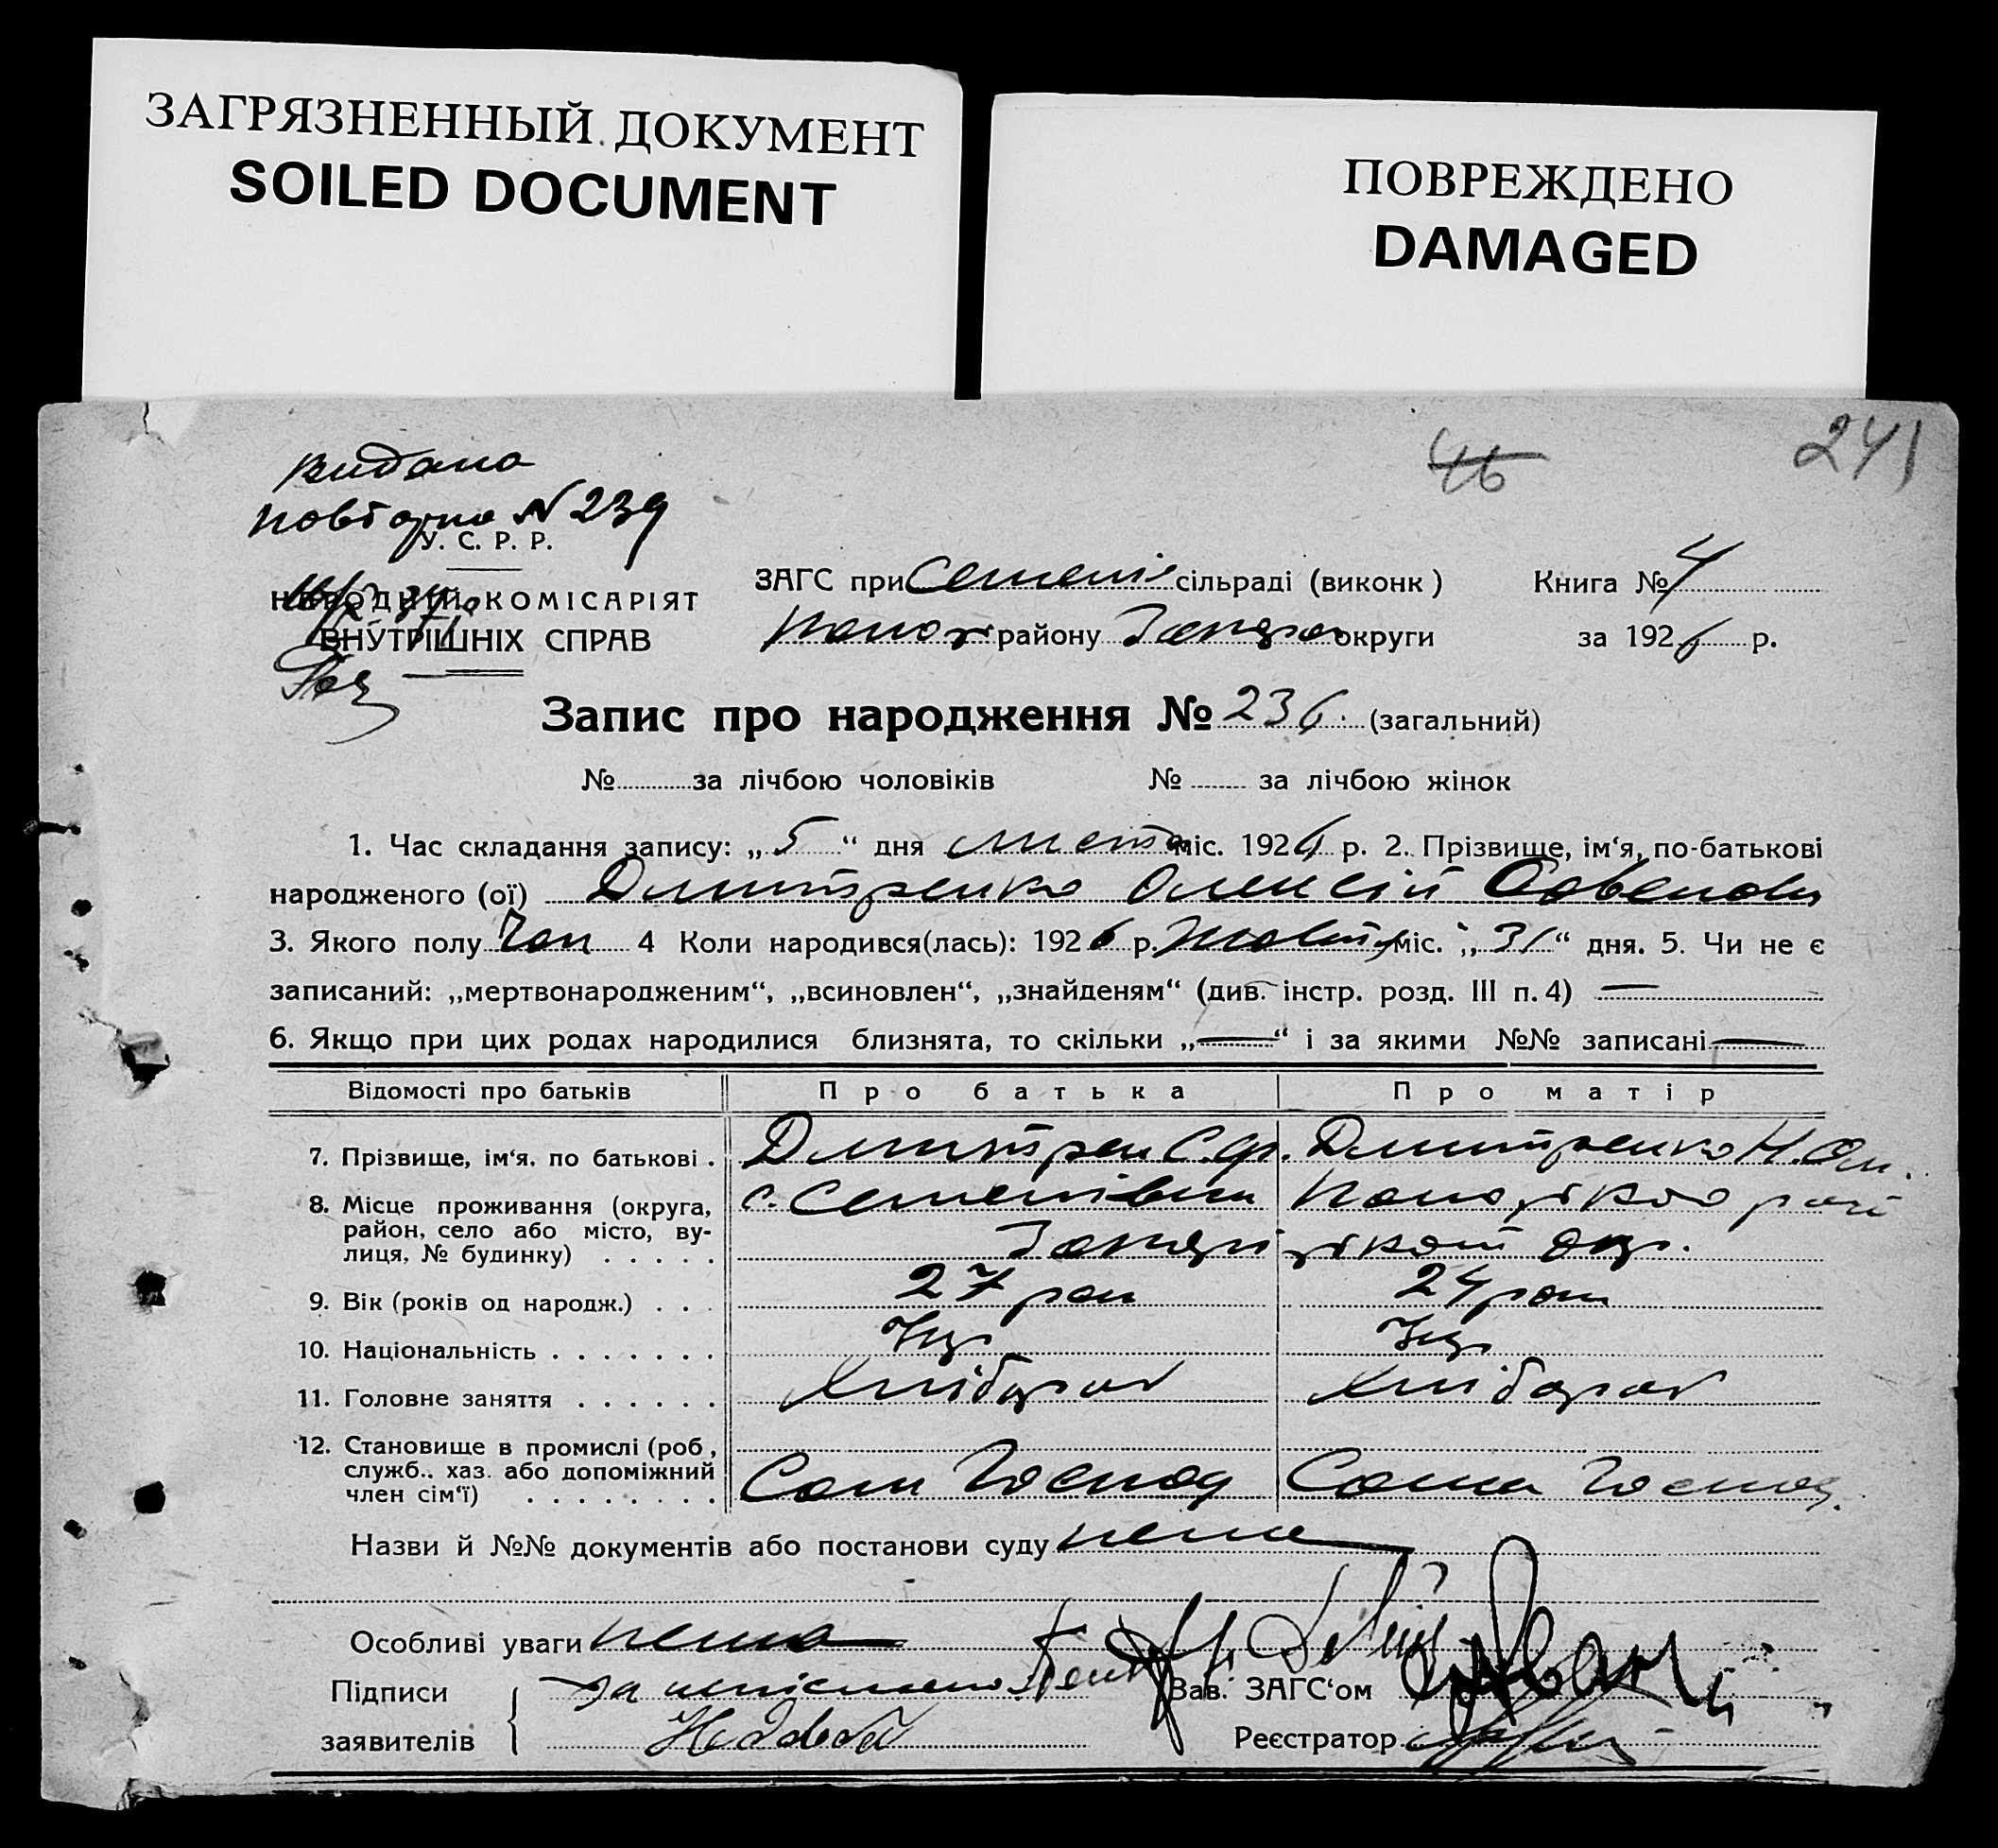 ЗАГРЯЗНЕННЫЙ ДОКУМЕНТ
SOILED DOCUMENT
ПОВРЕЖДЕНО
DAMAGED
46
241
видано
повторно N 239
У. С. Р. Р.
НАРОДНИЙ КОМІСАРІЯТ
ВНУТРІШНІХ СПРАВ
ЗАГС при Семенів сільраді (виконк) Книга № 4
району округи за 1926 р.
Запис про народження № 236. (загальний)
№ за лічбою чоловіків № за лічбою жінок
1. Час складання запису: „ 5 “ дня листоп міс. 1926 р. 2. Прізвище, ім‘я, по-батькові
народженого (ої) Дмитренко Олексій
3. Якого полу Чол 4 Коли народився(лась): 1926 р. Жовт міс. „ 31 “ дня. 5. Чи не є
записаний: „мертвонародженим“, „всиновлен“, „знайденям“ (див. інстр. розд. III п. 4) —
6. Якщо при цих родах народилися близнята, то скільки „—“ і за якими №№ записані —
Відомості про батьків Про батька Про матір
7. Прізвище, ім‘я, по батькові . Дмитрен С. Ф. Дмитренко Н.
8. Місце проживання (округа, район, село або місто, вулиця, № будинку) . . . . . с. Семенівки
9. Вік (років од народж.) . . . 27 рок 24 рок
10. Національність . . . . . . . Укр Укр
11. Головне заняття . . . . . . Хлібороб Хлібороб
12. Становище в промислі (роб,
служб., хаз. або допоміжний
член сім‘ї) . . . . . . . . Сам Господ Сама Господ.
Назви й №№ документів або постанови суду нема
Особливі уваги нема
Підписи
заявителів
Зав. ЗАГС‘ом
Реєстратор